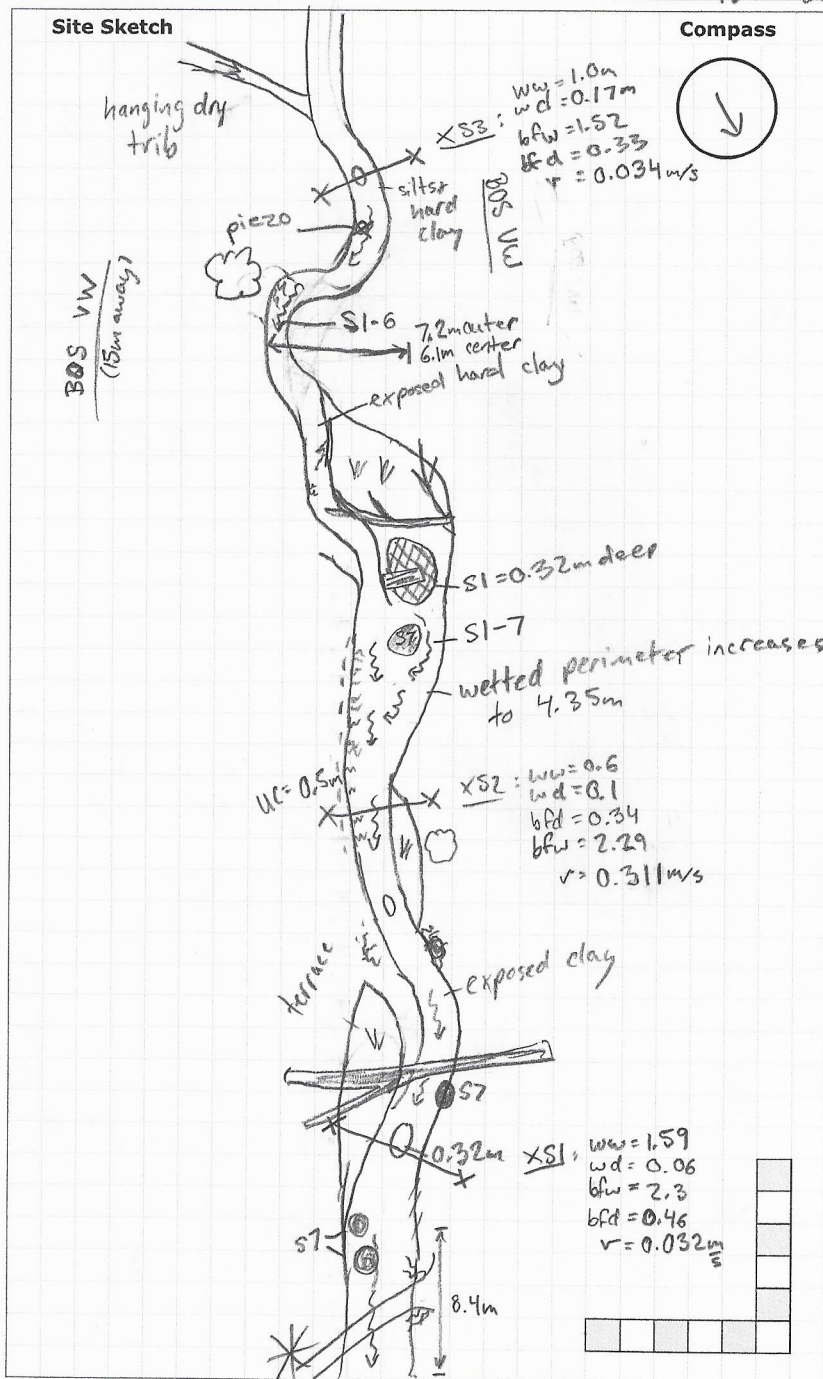 Site Sketch
Compass
hanging dry
trib
XS3:
ww=1.0m
wd=0.17m
bfw=1.52
bfd=0.33
v=0.034m/s
hard
clay
piezo
BOS VW
BOS VW
(15m away)
S1-6
7.2m outer
6.1m center
exposed hard clay
S1=0.32m deep
S7
S1-7
wetted perimeter increases
to 4.35m
UC=0.5m
XS2:
ww=0.6
wd=0.1
bfd=0.34
bfw=2.29
v=0.311m/s
terrace
exposed clay
S7
0.32m
XS1:
ww=1.59
wd=0.06
bfw=2.3
bfd=0.46
v=0.032 m/s
S7
8.4m